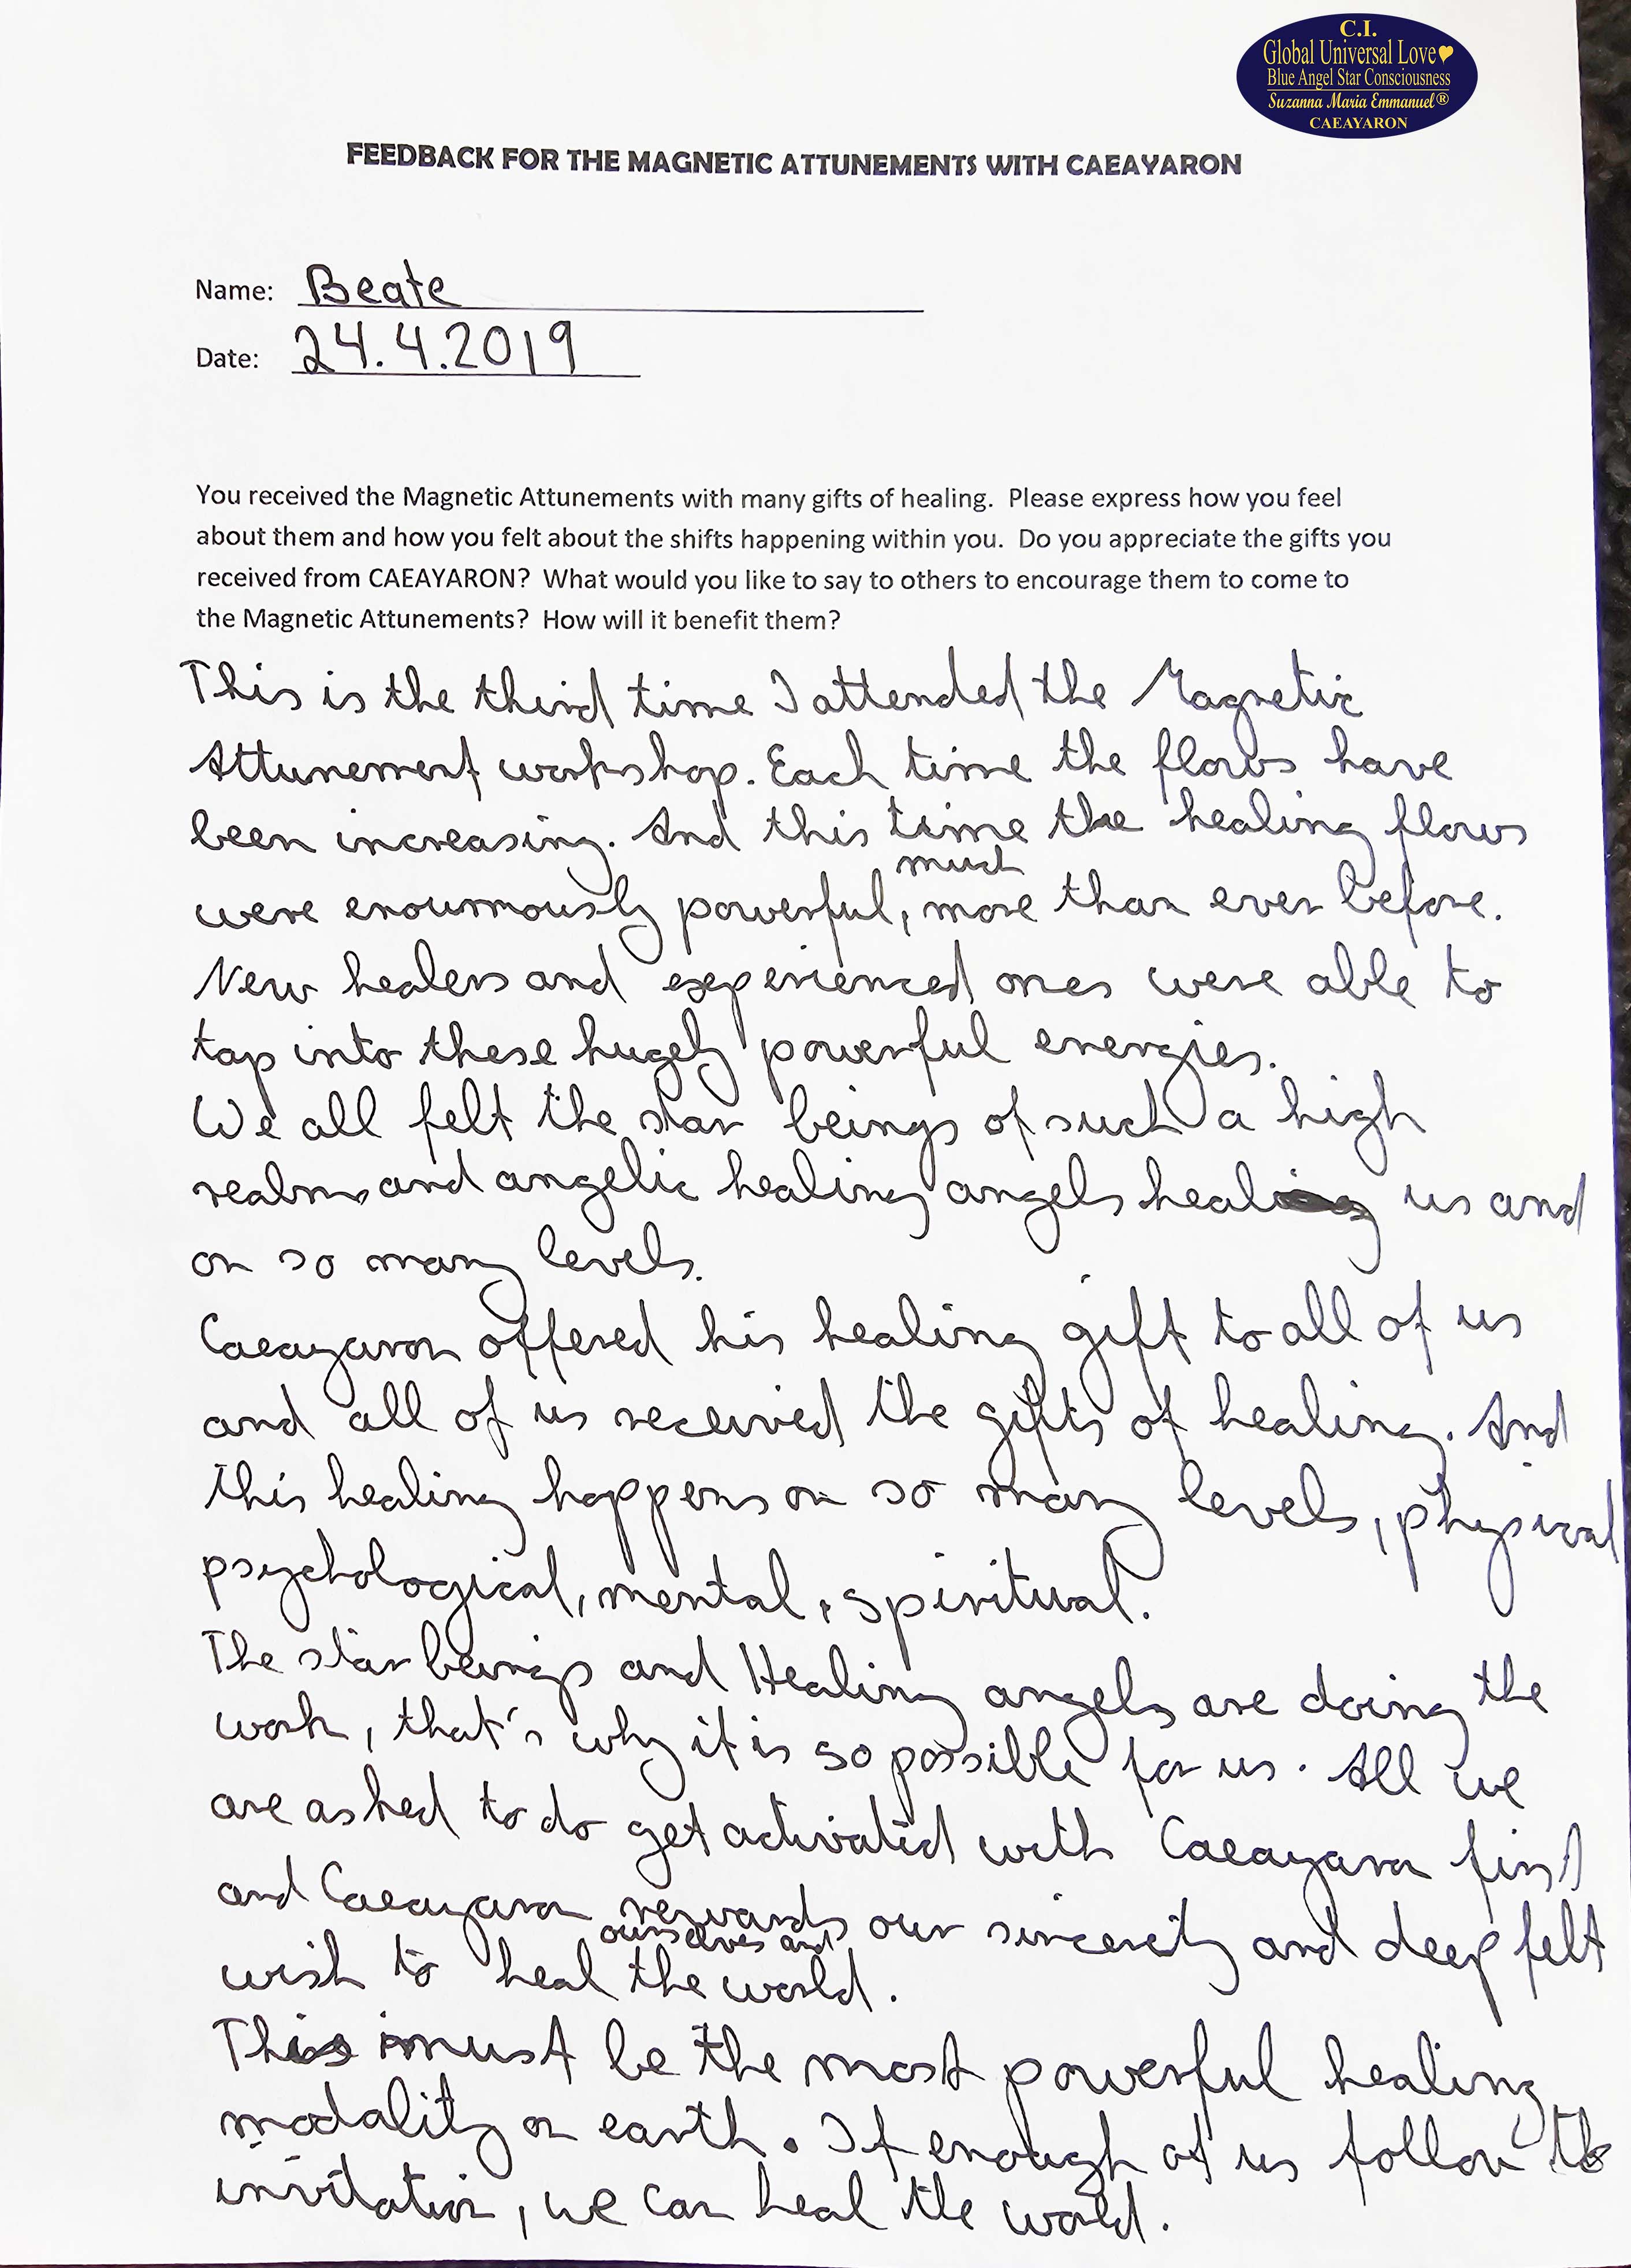 C.I.
Global Universal Love
Blue Angel Star Consciousness
Suzanna Maria Emmanuel®
CAEAYARON
FEEDBACK FOR THE MAGNETIC ATTUNEMENTS WITH CAEAYARON
Name: Beate
Date: 24.4.2019
You received the Magnetic Attunements with many gifts of healing. Please express how you feel
about them and how you felt about the shifts happening within you. Do you appreciate the gifts you
received from CAEAYARON? What would you like to say to others to encourage them to come to
the Magnetic Attunements? How will it benefit them?
This is the third time I attended the Magnetic
Attunement workshop. Each time the flows have
been increasing. And this time the healing flows
much
were enourmously powerful, more than ever before.
New healers and experienced ones were able to
tap into these hugely powerful energies.
We all felt the star beings of such a high
realms and angelic healing angels healing us and
on so many levels.
Caeayaron offered his healing gift to all of us
and all of us received the gifts of healing. And
this healing happens on so many levels, physical
psychological, mental, spiritual.
The star beings and Healing angels are doing the
work, that's why it is so possible for us. All we
are asked to do get activated with Caeayaron first
and Caeayaron rewards our sincerity and deep felt
ourselves and
wish to heal the world.
This must be the most powerful healing
modality on earth. If enough of us follow the
invitation, we can heal the world.